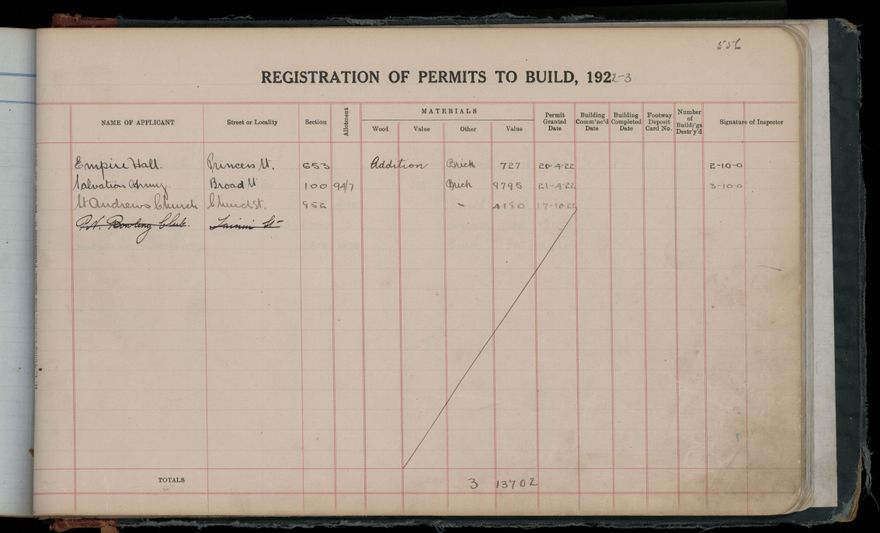 556
REGISTRATION OF PERMITS TO BUILD, 1922-3
NAME OF APPLICANT Street or Locality Section Allotment MATERIALS Wood Value Other Value Permit Granted Date Building Comm'nc'd Date Building Completed Date Footway Deposit Card No. Number of Buildi'gs Destr'y'd Signature of Inspector
Empire Hall Princess St. 653 Addition Brick 727 20-4-22 2-10-0
Salvation Army Broad St 100 94/7 Brick 8795 21-4-22 3-10-0
St Andrews Church Church St. 952 " 4180 17-10-22
P.N. Bowling Club.
TOTALS 3 13702